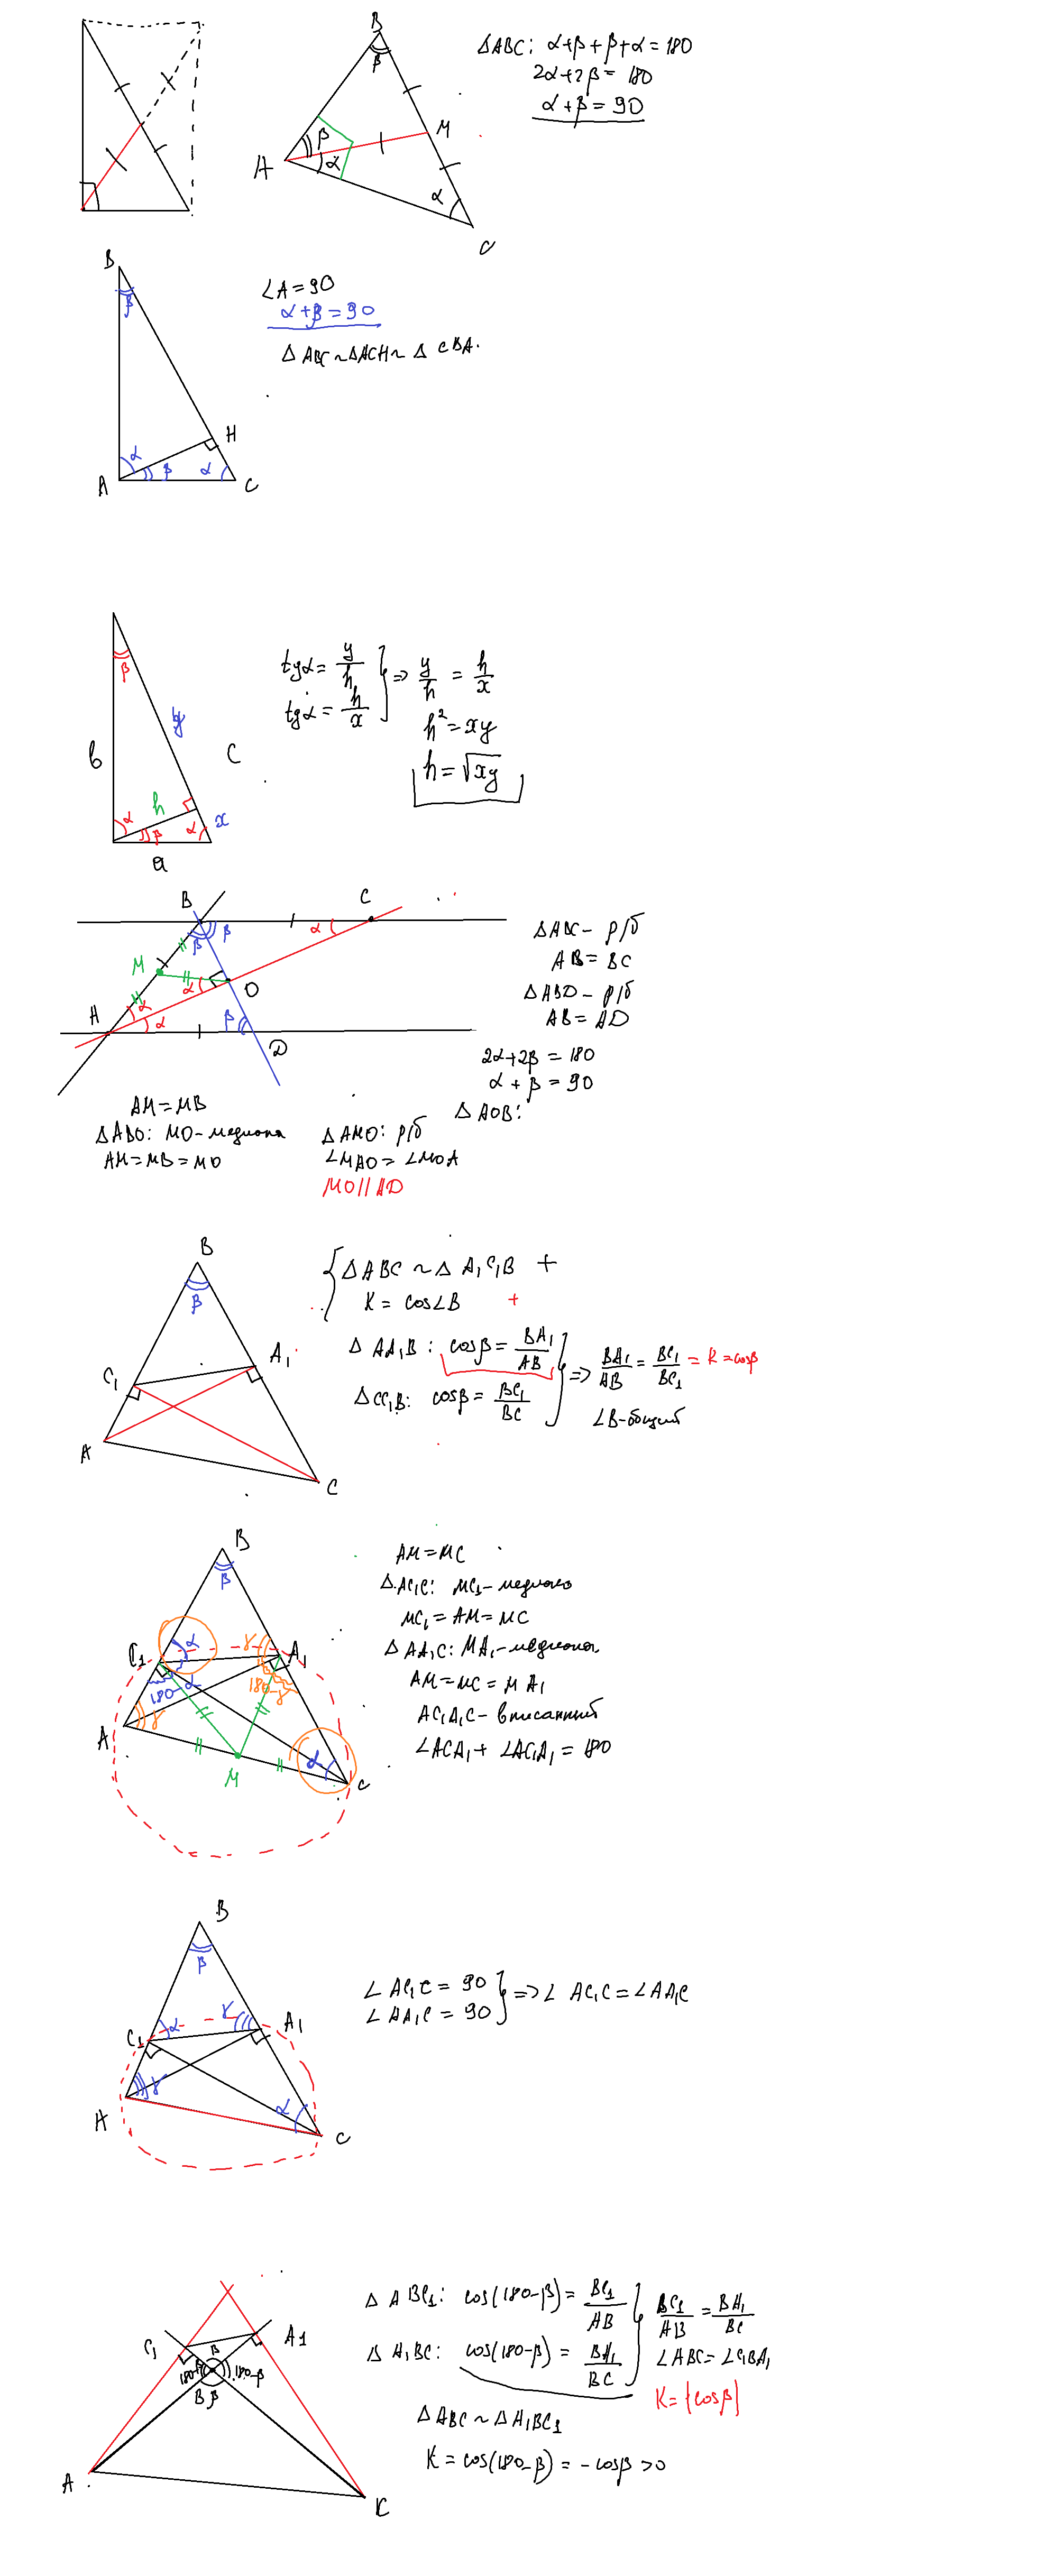 B
β
M
A
β
α
α
C
ΔABC: α+β+β+α=180
2α+2β=180
α+β=90
B
β
α
β
α
H
A
C
∠A=90
α+β=90
Δ ABC ~ ΔACH ~ Δ CBA.
β
y
b
c
h
α
β
α
x
a
tgα = y/h
tgα = h/x
=> y/h = h/x
h² = xy
h = √xy
B
C
β
β
α
M
α
O
A
α
α
β
D
ΔABC - р/б
AB = BC
ΔABD - р/б
AB = AD
2α+2β = 180
α + β = 90
Δ AOB:
AM = MB
ΔABO: MO - медиана
AM = MB = MO
ΔAMO: р/б
∠MAO = ∠MOA
MO // AD
B
β
C₁
A₁
A
C
Δ ABC ~ Δ A₁C₁B +
K = cos∠B +
Δ AA₁B: cosβ = BA₁/AB
ΔCC₁B: cosβ = BC₁/BC
=> BA₁/AB = BC₁/BC₁ = K = cosβ
∠B - общий
B
β
C₁
α
γ
A₁
180-α
180-γ
A
γ
α
C
M
AM = MC
ΔAC₁C: MC₁ - медиана
MC₁ = AM = MC
Δ AA₁C: MA₁ - медиана
AM = MC = MA₁
AC₁A₁C - вписанный
∠ACA₁ + ∠AC₁A₁ = 180
B
β
C₁
α
γ
A₁
γ
A
α
C
∠ AC₁C = 90
∠ AA₁C = 90
=> ∠ AC₁C = ∠AA₁C
C₁
A1
β
180-β
180-β
B
β
A
C
Δ ABC₁: cos(180-β) = BC₁/AB
Δ A₁BC: cos(180-β) = BA₁/BC
BC₁/AB = BA₁/BC
∠ABC = ∠C₁BA₁
K = |cosβ|
Δ ABC ~ Δ A₁BC₁
K = cos(180-β) = - cosβ > 0